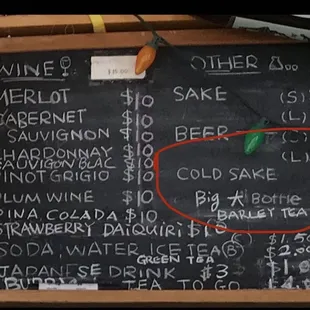 WINE
$15.00
MERLOT $10
CABERNET
SAUVIGNON $10
CHARDONNAY $10
SAUVIGON BLAC $10
PINOT GRIGIO $10
PLUM WINE $10
PINA COLADA $10
STRAWBERRY DAIQUIRI $10
OTHER
SAKE (S)
(L)
BEER
(L)
COLD SAKE
Big Bottle
BARLEY TEA
SODA, WATER ICE TEA
GREEN TEA
JAPANESE DRINK $3
TEA TO GO